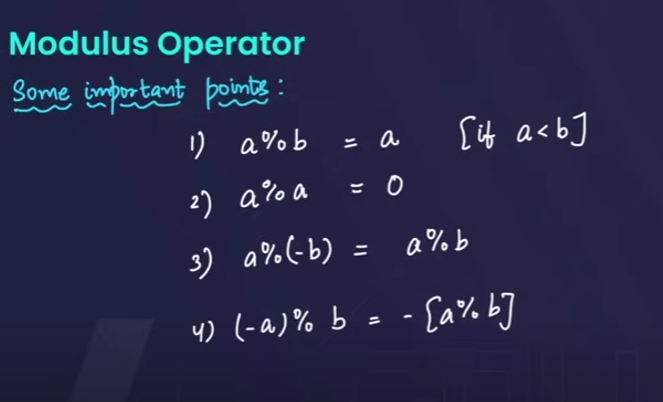 Modulus Operator
Some important points :
1) a%b = a [if a<b]
2) a%a = 0
3) a%(-b) = a%b
4) (-a)% b = - [a%b]